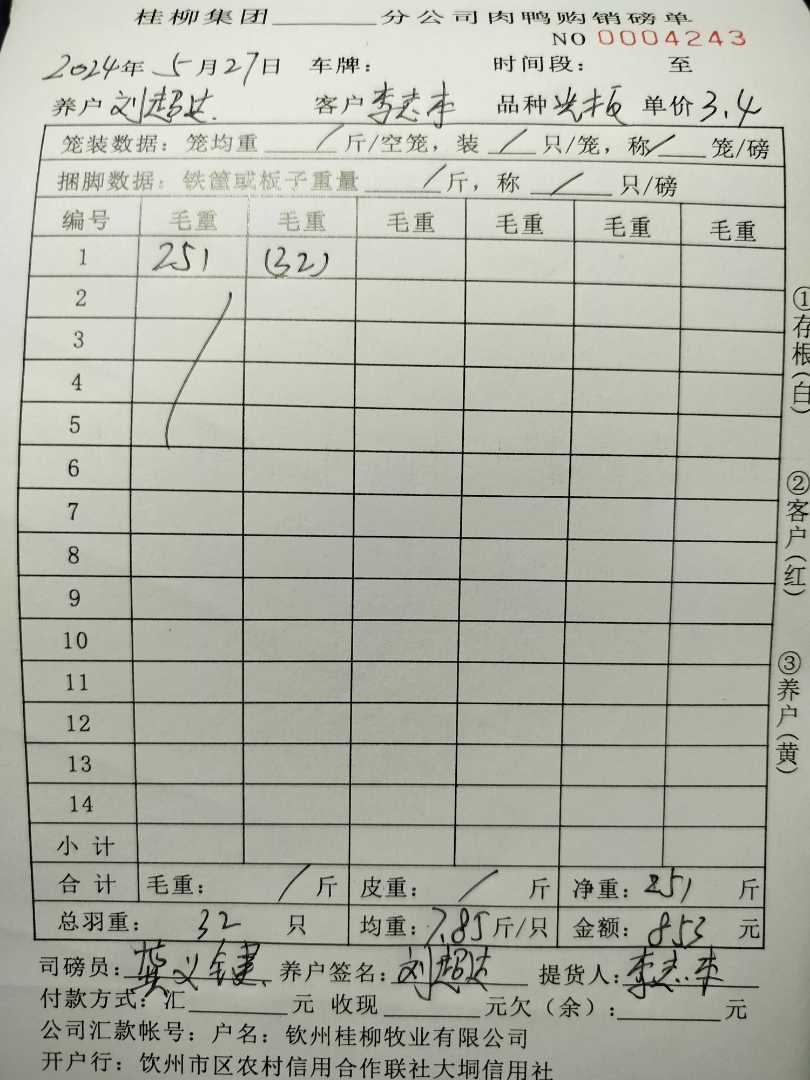 桂柳集团______分公司肉鸭购销磅单
NO 0004243
2024年 5月27日 车牌： 时间段： 至
养户 刘超达 客户 李志丰 品种 光板 单价 3.4
笼装数据：笼均重 / 斤/空笼，装 / 只/笼，称 / 笼/磅
捆脚数据：铁筐或板子重量 / 斤，称 / 只/磅
编号 毛重 毛重 毛重 毛重 毛重 毛重
1 251 (32)
2
3
4
5
6
7
8
9
10
11
12
13
14
小计
合计 毛重： / 斤 皮重： / 斤 净重：251 斤
总羽重： 32 只 均重：7.85斤/只 金额：853 元
司磅员： 养户签名：刘超达 提货人：李志丰
付款方式：汇______元 收现______元欠（余）：______元
公司汇款帐号：户名：钦州桂柳牧业有限公司
开户行：饮州市区农村信用合作联社大垌信用社
①存根(白)
②客户(红)
③养户(黄)